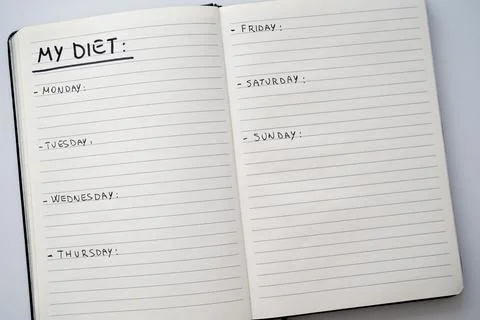 MY DIET:
- MONDAY:
- TUESDAY.
- WEDNESDAY:
- THURSDAY:
- FRIDAY:
- SATURDAY:
- SUNDAY: